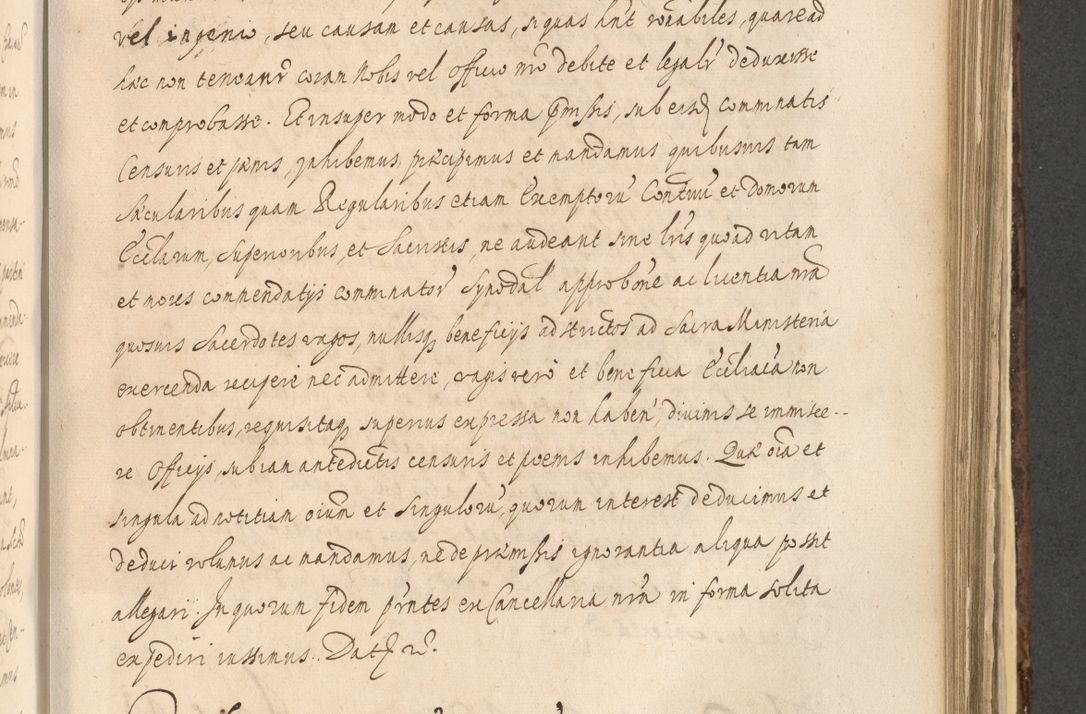 vel ingenio, seu causam et causas, si quas hn̄t rōnabiles, quare ad
hæc non teneant͛ coram Nobis vel Officio nr̄o debite et legalr̄ deduxisse
et comprobasse. Et insuper modo et forma p̄missis, sub eisd comminatis
Censuris et pænis, inhibemus, præcipimus et mandamus quibusvis tam
Sæcularibus quam Regularibus etiam Exemptorū Conventuū et domorum
Ecclarum, Superioribus, et Sacristis, ne audeant sine lr̄is quo ad vitam
et mores commendatijs comminator̄ Synodal approbōne ac licentia nr̄a
quosvis Sacerdotes vagos, nullisq beneficijs adstrictos ad Sacra Ministeria
exercenda recipere nec admittere, vagis verò et beneficia Ecclīaca non
obtinentibus, requisitaq superius expressa non haben̄, divinis se immisce--
re Officijs, sub iam antedictis censuris et poenis inhibemus. Quæ oīa et
singula ad notitiam oīum et singulorū, quorum interest deducimus et
deduci volumus ac mandamus, ne de præmissis ignorantia aliqua possit
allegari. In quorum fidem pr̄ntes ex Cancellaria nr̄a in forma solita
expediri iussimus. Dat